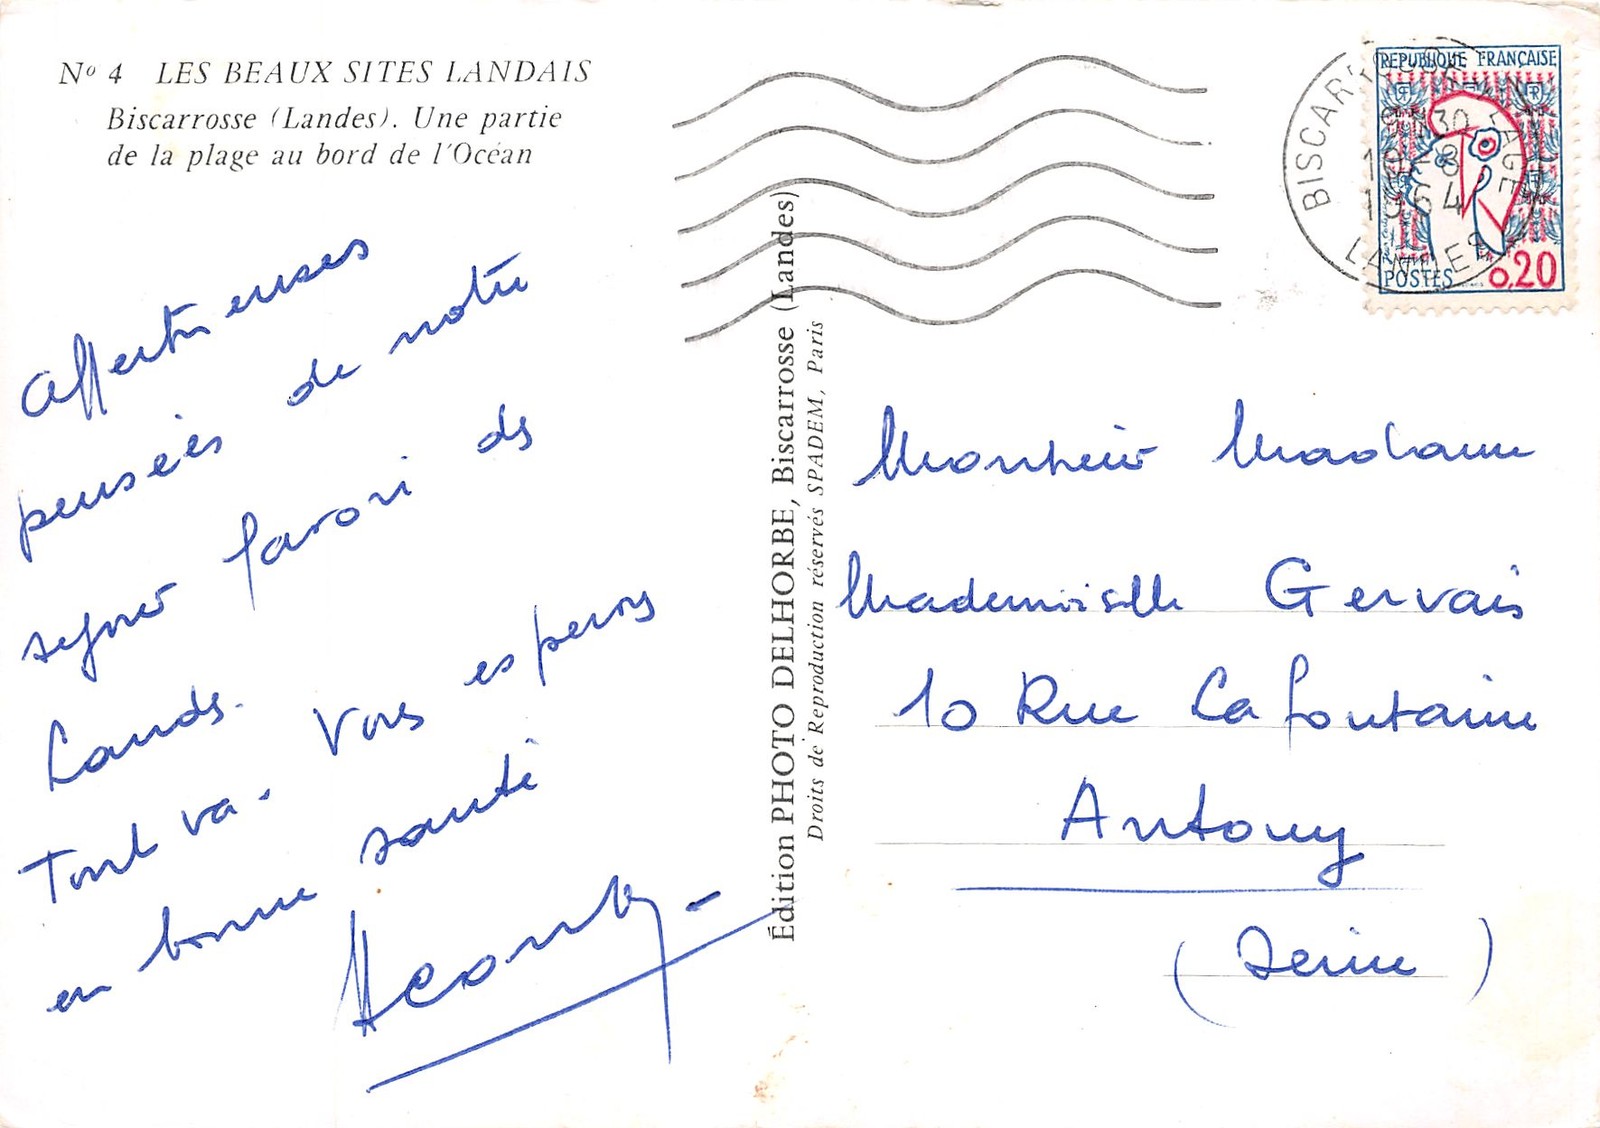 Nº 4 LES BEAUX SITES LANDAIS
Biscarrosse (Landes). Une partie
de la plage au bord de l'Océan
Affectueuses
pensées de notre
séjour favori des
Landes.
Tout va. Vous espérons
en bonne santé
Édition PHOTO DELHORBE, Biscarrosse (Landes)
Droits de Reproduction réservés SPADEM, Paris
REPUBLIQUE FRANÇAISE
POSTES 0,20
BISCARROSSE PLAGE
1964
LANDES
Monsieur Madame
Mademoiselle Gervais
10 Rue La fontaine
Antony
(Seine)